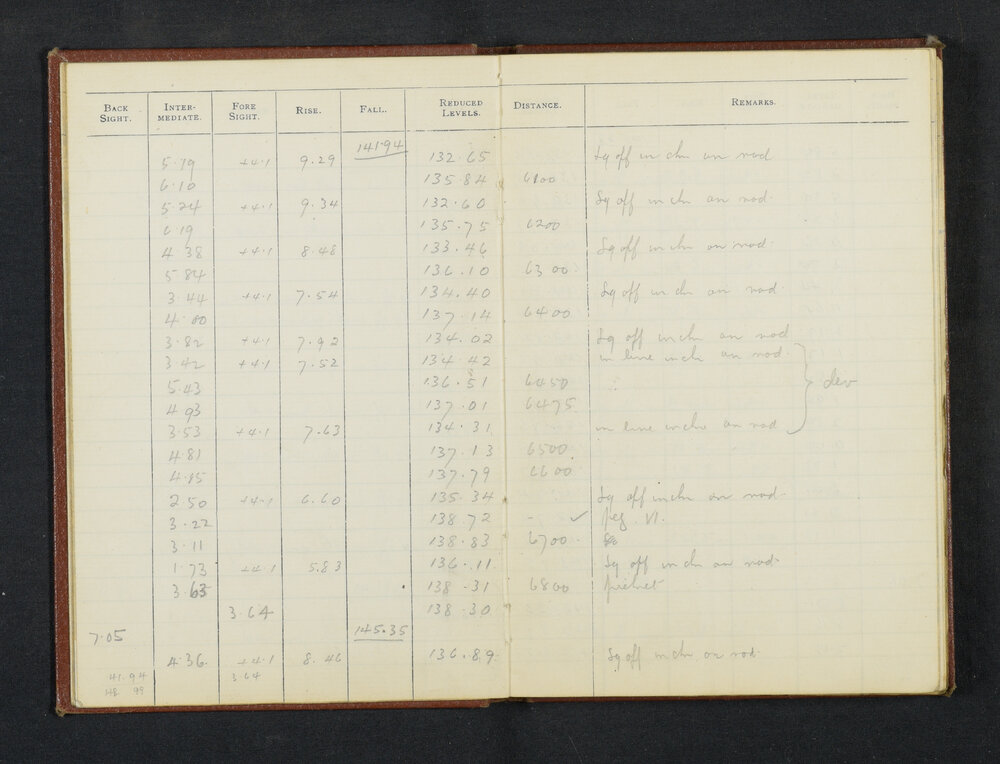 BACK SIGHT. INTER-MEDIATE. FORE SIGHT. RISE. FALL. REDUCED LEVELS. DISTANCE. REMARKS.
141.94
5.19 +4.1 9.29 132.65 Sq off in chn on rod
6.10 135.84 6100
5.24 +4.1 9.34 132.60 Sq off in chn on rod.
6.19 135.75 6200
4.38 +4.1 8.48 133.46 Sq off in chn on rod.
5.84 136.10 6300
3.44 +4.1 7.54 134.40 Sq off in chn on rod.
4.80 137.14 6400
3.82 +4.1 7.92 134.02 Sq off in chn on rod
3.42 +4.1 7.52 134.42 in line in chn on rod.
5.43 136.51 6450 dev
4.93 137.01 6475
3.53 +4.1 7.63 134.31 in line in chn on rod
4.81 137.13 6500
4.15 137.79 6600
2.50 +4.1 6.60 135.34 Sq off in chn on rod.
3.22 138.72 - ✓ peg. VI.
3.11 138.83 6700
1.73 +4.1 5.83 136.11 Sq off in chn on rod.
3.63 138.31 6800 picket
3.64 138.30
7.05 145.35
4.36 +4.1 8.46 136.89 Sq off in chn on rod.
41.94 3.64
48.99